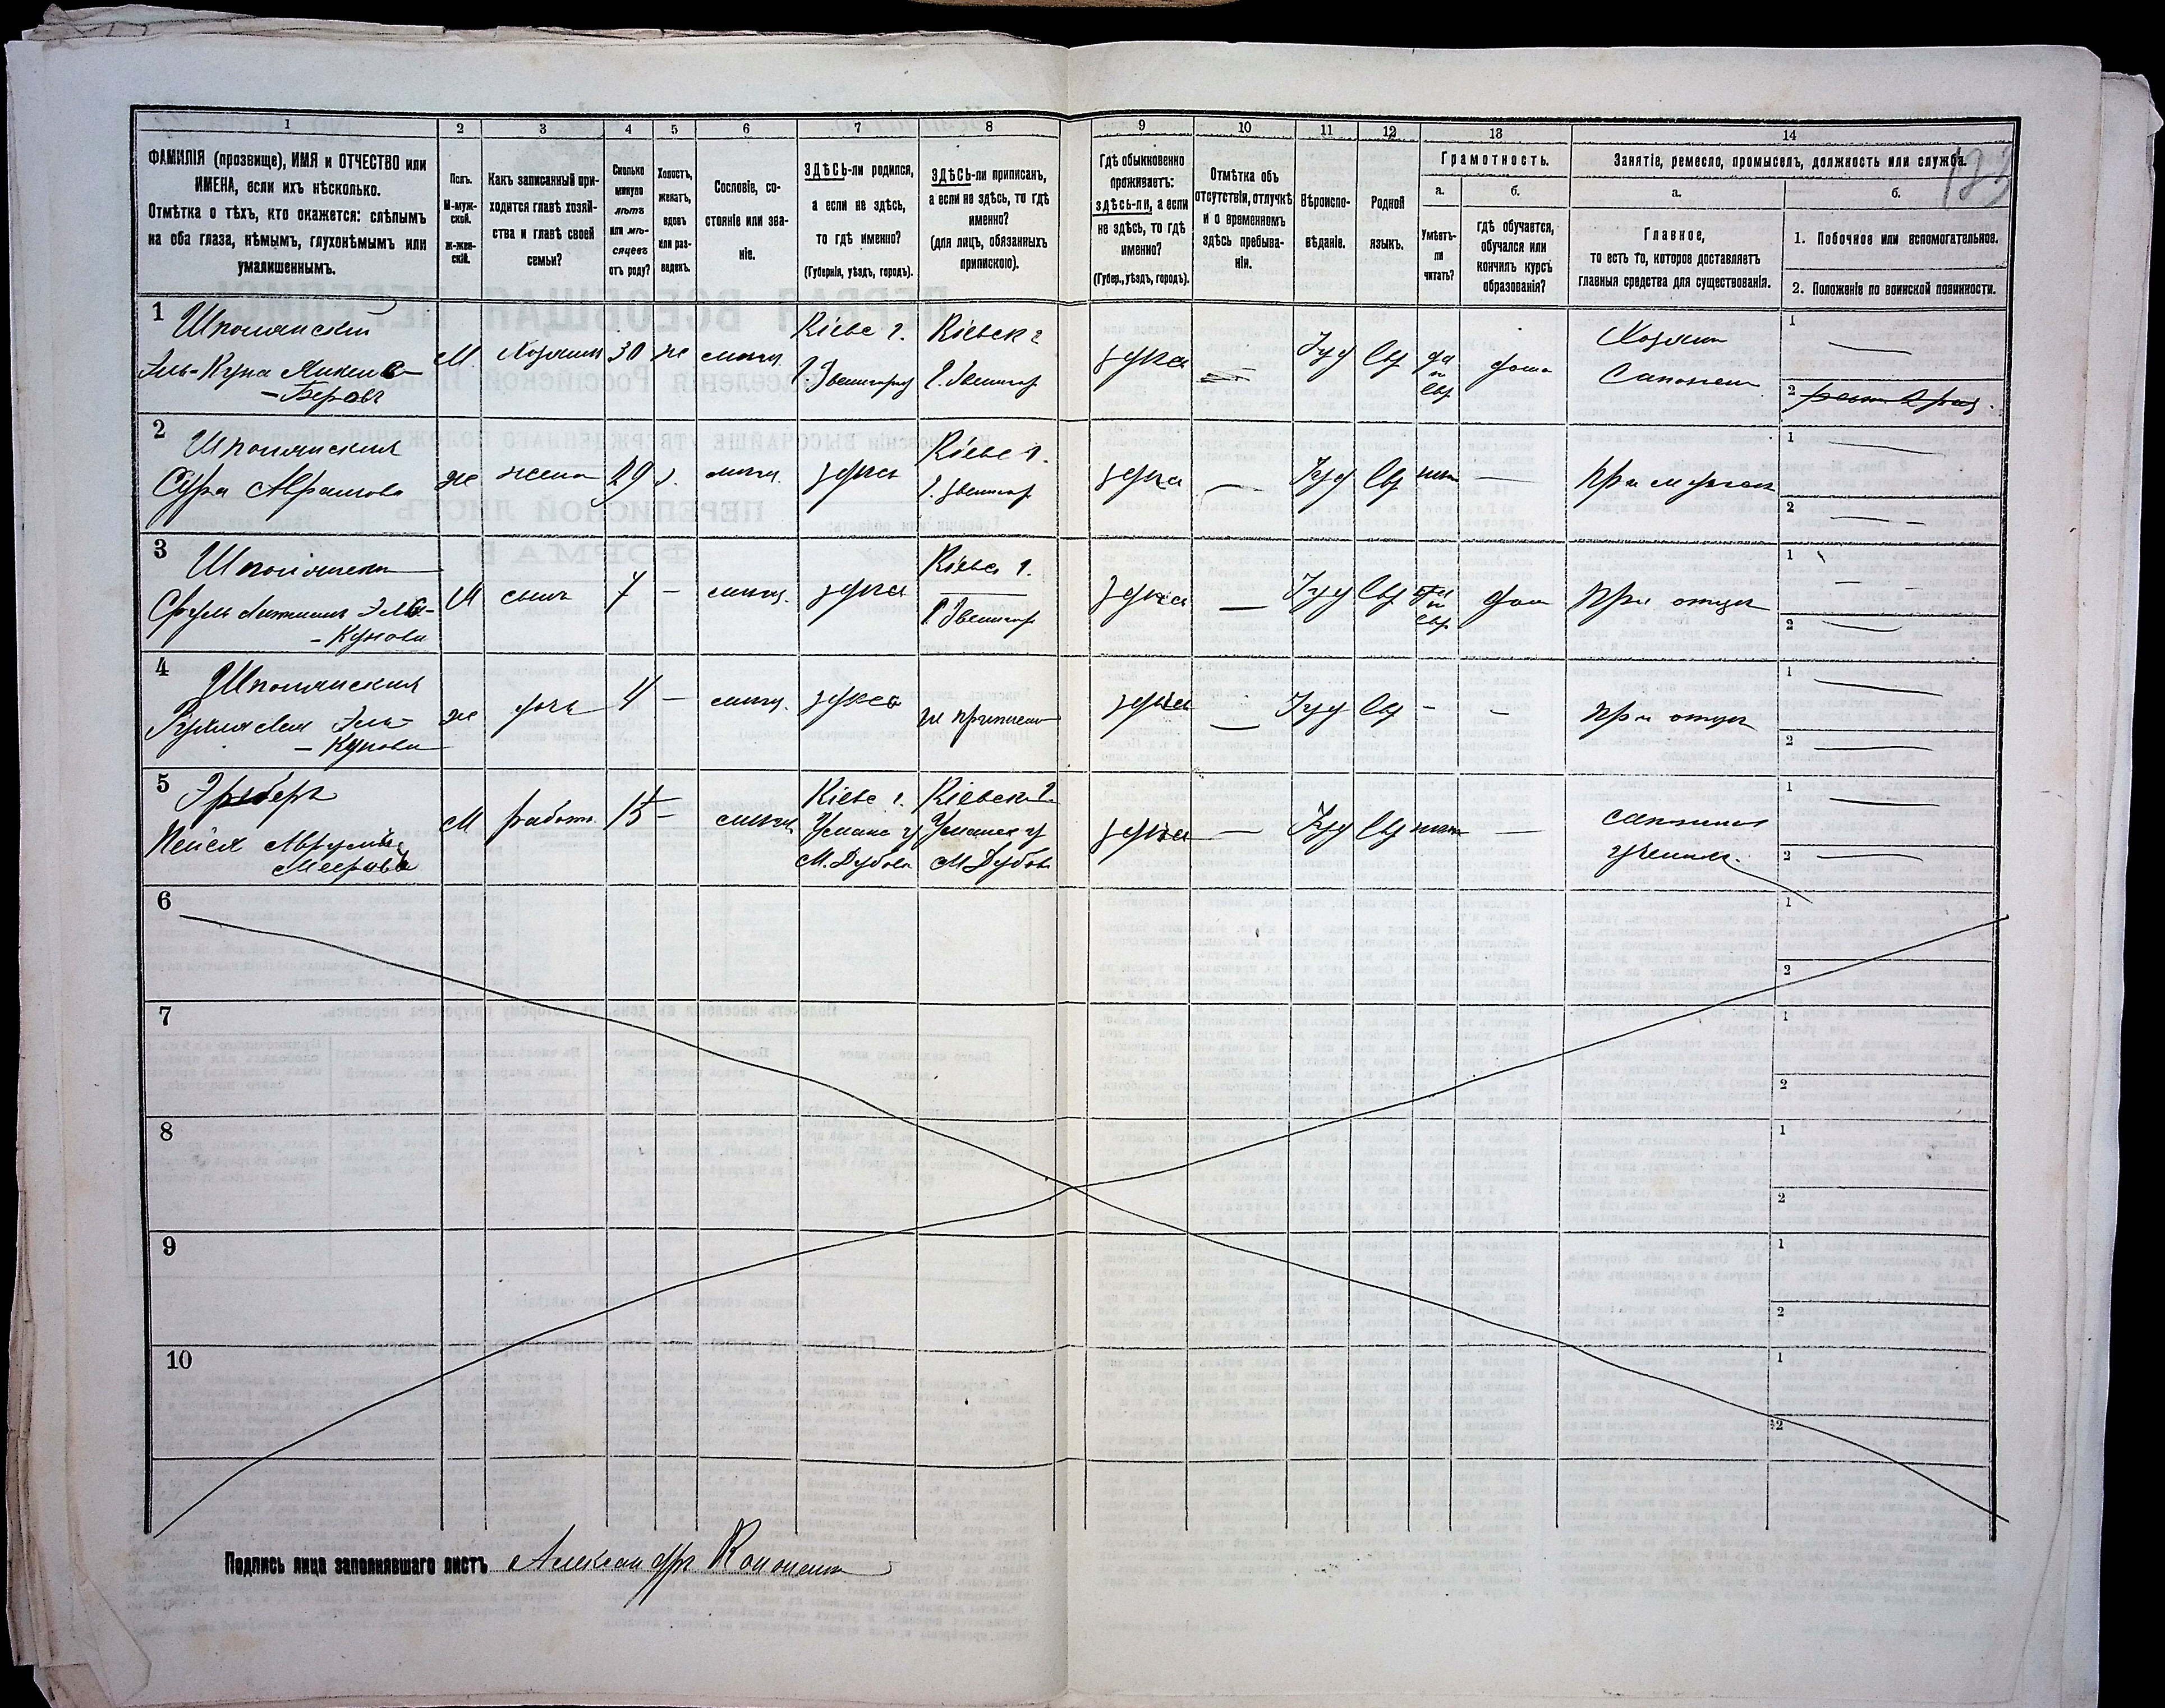 1 2 3 4 5 6 7 8 9 10 11 12 13 14
ФАМИЛІЯ (прозвище), ИМЯ и ОТЧЕСТВО или
ИМЕНА, если ихъ нѣсколько.
Отмѣтка о тѣхъ, кто окажется: слѣпымъ
на оба глаза, нѣмымъ, глухонѣмымъ или
умалишеннымъ.
Полъ.
М-муж-
ской.
Ж-жен-
скій.
Какъ записанный при-
ходится главѣ хозяй-
ства и главѣ своей
семьи?
Сколько
минуло
лѣтъ
или мѣ-
сяцевъ
отъ роду?
Холостъ,
женатъ,
вдовъ
или раз-
веденъ.
Сословіе, со-
стояніе или зва-
ніе.
ЗДѢСЬ-ли родился,
а если не здѣсь,
то гдѣ именно?
(Губернія, уѣздъ, городъ).
ЗДѢСЬ-ли приписанъ,
а если не здѣсь, то гдѣ
именно?
(для лицъ, обязанныхъ
припискою).
Гдѣ обыкновенно
проживаетъ:
здѣсь-ли, а если
не здѣсь, то гдѣ
именно?
(Губер., уѣздъ, городъ).
Отмѣтка объ
отсутствіи, отлучкѣ
и о временномъ
здѣсь пребыва-
ніи.
Вѣроиспо-
вѣданіе.
Родной
языкъ.
Грамотность.
а.
Умѣетъ-
ли
читать?
б.
гдѣ обучается,
обучался или
кончилъ курсъ
образованія?
Занятіе, ремесло, промыселъ, должность или служба.
а.
Главное,
то есть то, которое доставляетъ
главныя средства для существованія.
б.
1. Побочное или вспомогательное.
2. Положеніе по воинской повинности.
1 Шполянскій
Эль-Куна
-Беровъ
М. Хозяинъ 30 же
Кіевс г.
г. Звенигород
Кіевск г
г. Звенигор
здѣсь
Іуд Евр да
и
евр
дома
Хозяинъ
Сапожн
1
2
2 Шполянская
Сура Аврамова
же жена 29 з.
здѣсь
Кіевс г.
г. Звенигор
здѣсь — Іуд Евр нѣтъ —
При мужѣ
1
2
3 Шполянскій
Куновъ
М сынъ 7 —
здѣсь
Кіевс г.
г. Звенигор
здѣсь — Іуд Евр да
и
евр
дом
При отцѣ
1
2
4 Шполянская
Эль-
-Кунова
же дочь 4 —
здѣсь
не приписана
здѣсь — Іуд Евр - -
При отцѣ
1
2
5
Мееровъ
М работн. 15 —
Кіевс г.
Уманс у
М. Дубова
Кіевск г.
Уманск у
М. Дубова
здѣсь — Іуд Евр нѣтъ —
ученик.
1
2
6 1
2
7 1
2
8 1
2
9 1
2
10 1
2
Подпись лица заполнявшаго листъ Александръ